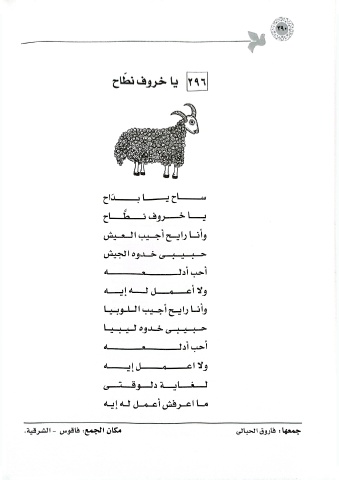 ٢٩٠
٢٩٦ يا خروف نطّاح
ساح يا بداح
يا خروف نطّاح
وأنا رايح أجيب العيش
حبيبى خدوه الجيش
أحب أدلعه
ولا أعمل له إيه
وأنا رايح أجيب اللوبيا
حبيبى خدوه ليبيا
أحب أدلعه
ولا اعمل إيه
لغاية دلوقتى
ما اعرفش أعمل له إيه
جمعها: فاروق الحبالى مكان الجمع: فاقوس - الشرقية.